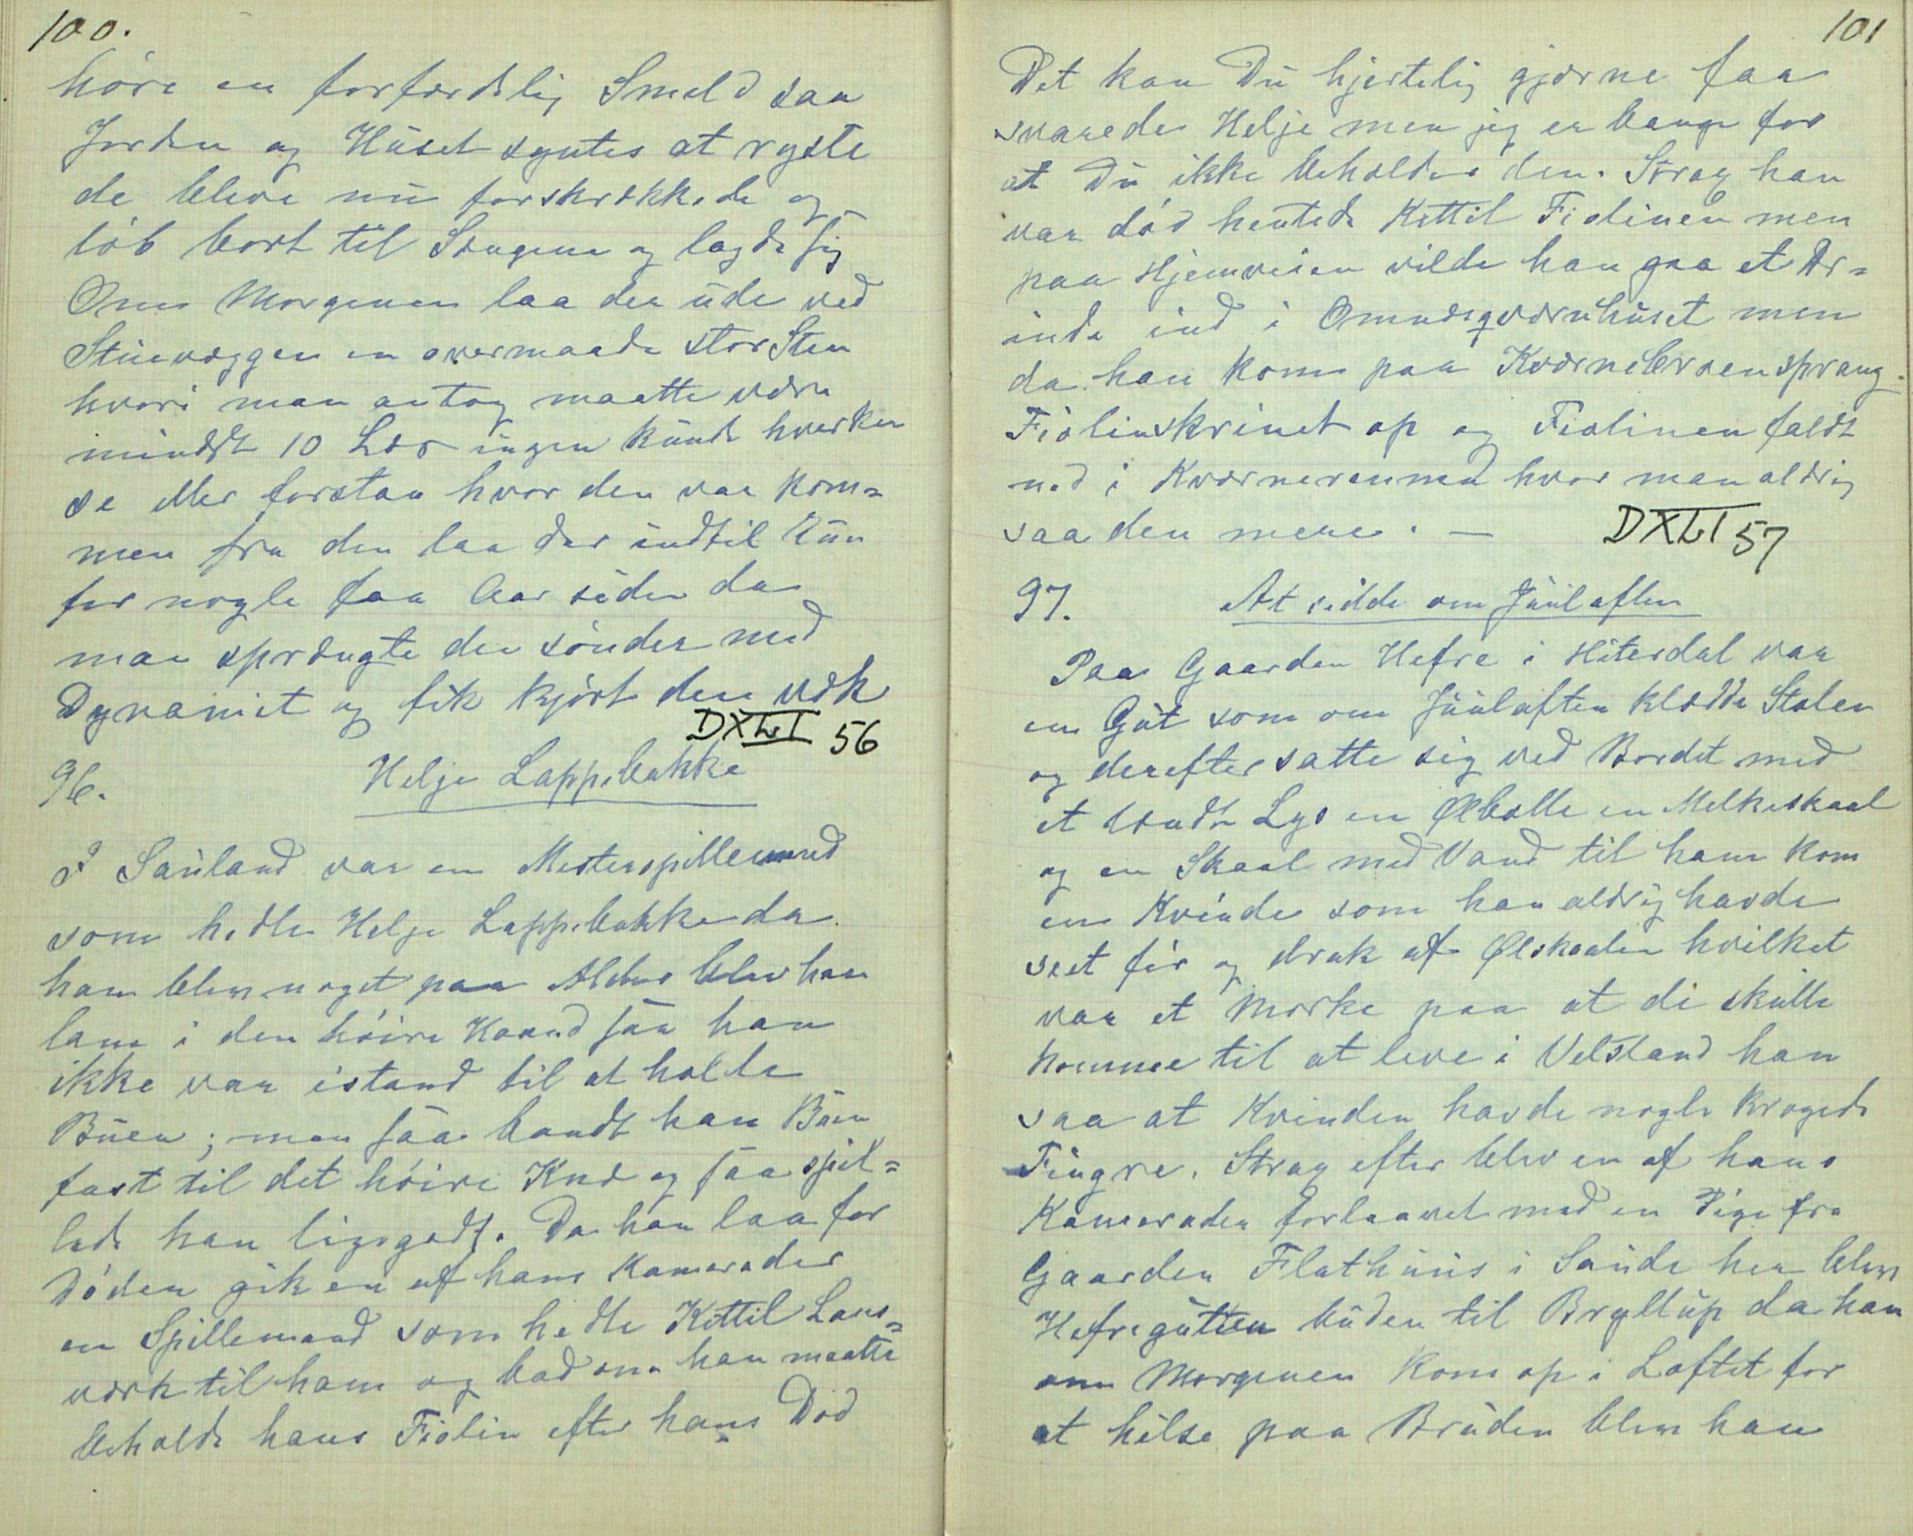 100.
höre en forfærdelig Smeld saa
Jorden og Huset syntes at ryste
de bleve nu forskrækkede og
löb bort til Sengene og lagde sig
Om Morgenen laa der ude ved
Stuevæggen en overmaade stor Sten
hvori man antog maatte være
mindst 10 Læs ingen kunde hverken
se eller forstaa hvor den var kom=
men fra den laa der indtil kun
for nogle faa Aar siden da
man sprængte den sönder med
Dynamit og fik kjört den væk
DXLI 56
96. Helje Lappebakke
I Sauland var en Mesterspillemand
som hedte Helje Lappebakke da
han blev noget paa Alder blev han
lam i den höire Haand saa han
ikke var istand til at holde
Buen; men saa bandt han Buen
fast til det höire Knæ og saa spil=
lede han ligegodt. Da han laa for
Döden gik en af hans Kamerader
en Spillemand som hedte Kittil Lons=
værk til ham og bad om han maatte
beholde hans Fiolin efter hans Död
101
Det kan Du hjertelig gjærne faa
svarede Helje men jeg er bange for
at Du ikke beholder den. Strax han
var död hentede Kettil Fiolinen men
paa Hjemveien vilde han gaa et Ær=
inde ind i Omnæsqværnhuset men
da han kom paa Kværnebroen sprang
Fiolinskrinet op og Fiolinen faldt
ned i Kværnerennen hvor man aldrig
saa den mere. —
DXLI 57
97. At sidde om Juulaften
Paa Gaarden Hefre i Hiterdal var
en Gut som om Juulaften klædde Stolen
og derefter satte sig ved Bordet med
et tændt Lys en Ølbolle en Melkeskaal
og en Skaal med Vand til ham kom
en Kvinde som han aldrig havde
seet för og drak af Ølskaalen hvilket
var et Mærke paa at de skulle
komme til at leve i Velstand han
saa at Kvinden havde nogle krogede
Fingre. Strax efter blev en af hans
Kamerader forlovet med en Pige fra
Gaarden Flathuus i Saude her blev
Hefregutten buden til Bryllup da han
om Morgenen kom op i Loftet for
at hilse paa Bruden blev han